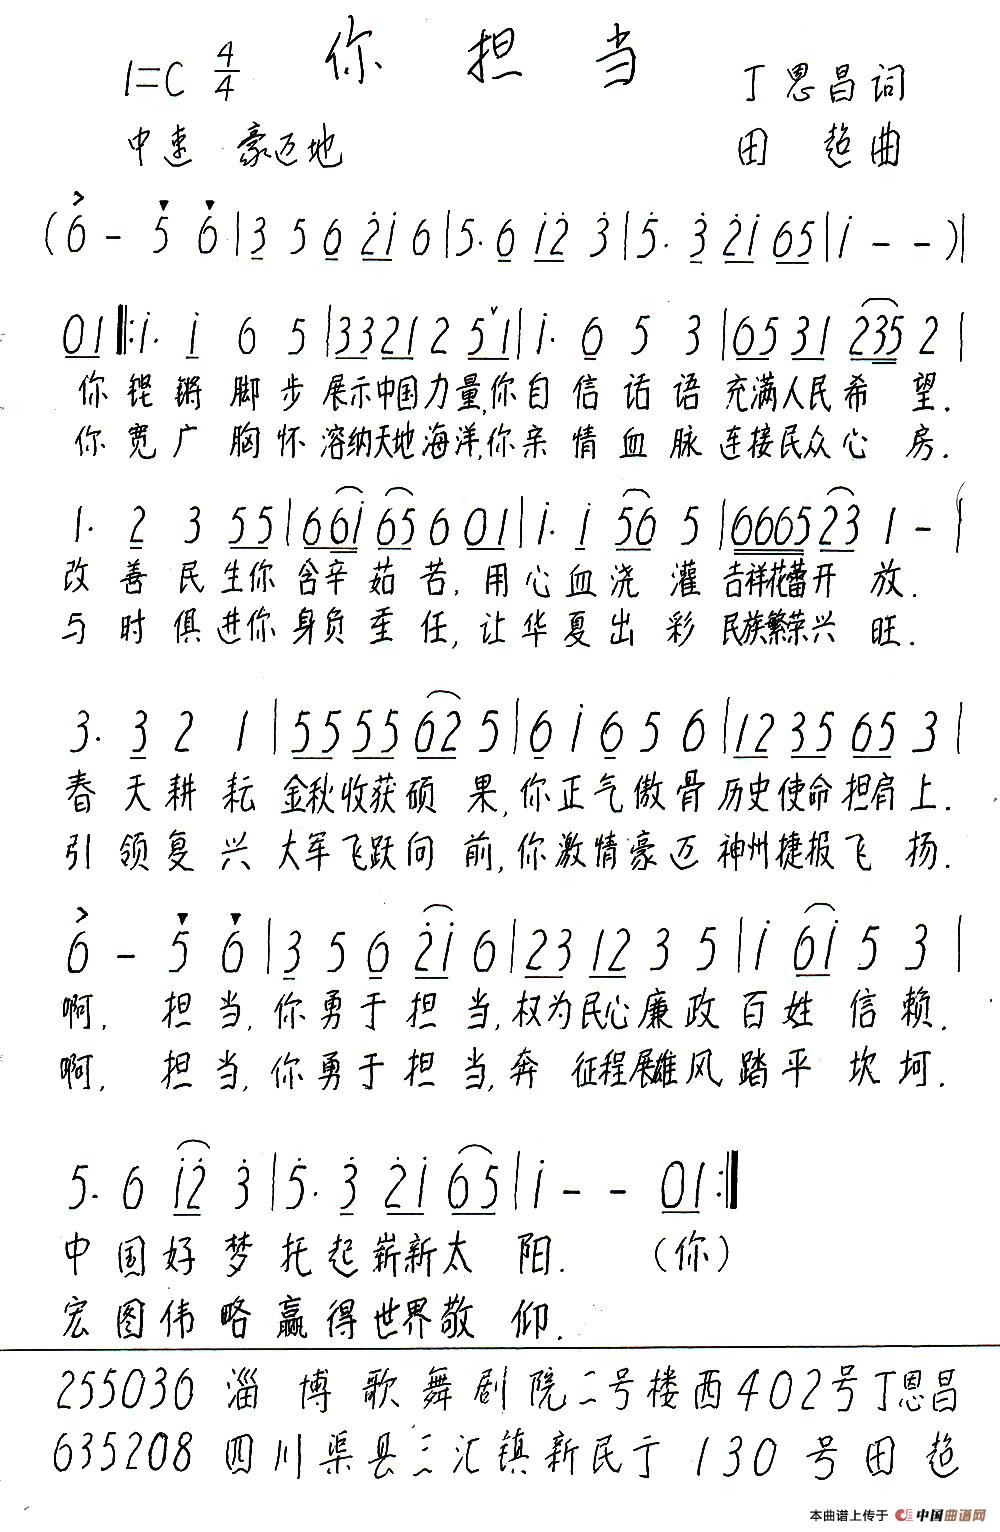 你 担 当
1=C 4/4 丁恩昌词
中速 豪迈地 田 超曲
(6 - 5 6 | 3 5 6 2 1 6 | 5. 6 1 2 3 | 5. 3 2 1 6 5 | 1 - - )|
0 1 ‖: 1. 1 6 5 | 3 3 2 1 2 5 1 | 1. 6 5 3 | 6 5 3 1 2 3 5 2 |
你 铿 锵 脚 步 展示中国力量,你自 信 话 语 充满人民希 望.
你 宽 广 胸 怀 溶纳天地海洋,你亲 情 血 脉 连接民众心 房.
1. 2 3 5 5 | 6 6 1 6 5 6 0 1 | 1. 1 5 6 5 | 6 6 6 5 2 3 1 - |
改 善 民 生你 含辛 茹 苦, 用 心 血 浇 灌 吉祥花蕾开 放.
与 时 俱 进你 身负 重 任, 让 华 夏 出 彩 民族繁荣兴 旺.
3. 3 2 1 | 5 5 5 5 6 2 5 | 6 1 6 5 6 | 1 2 3 5 6 5 3 |
春 天 耕 耘 金秋收获硕 果,你正气傲骨 历史使命担肩上.
引 领 复 兴 大军飞跃向 前,你激情豪迈 神州捷报飞 扬.
6 - 5 6 | 3 5 6 2 1 6 | 2 3 1 2 3 5 | 1 6 1 5 3 |
啊, 担 当,你勇于 担 当,权为民心廉政百姓 信 赖.
啊, 担 当,你勇于 担 当,奔 征程展雄风踏平 坎 坷.
5. 6 1 2 3 | 5. 3 2 1 6 5 | 1 - - 0 1 :‖
中 国 好 梦 托 起 崭新太 阳. (你)
宏 图 伟 略 赢 得 世界敬 仰.
255036 淄 博 歌 舞 剧 院二号楼西402号丁恩昌
635208 四 川 渠县三汇镇新民丁 130 号 田 超
本曲谱上传于 中国曲谱网